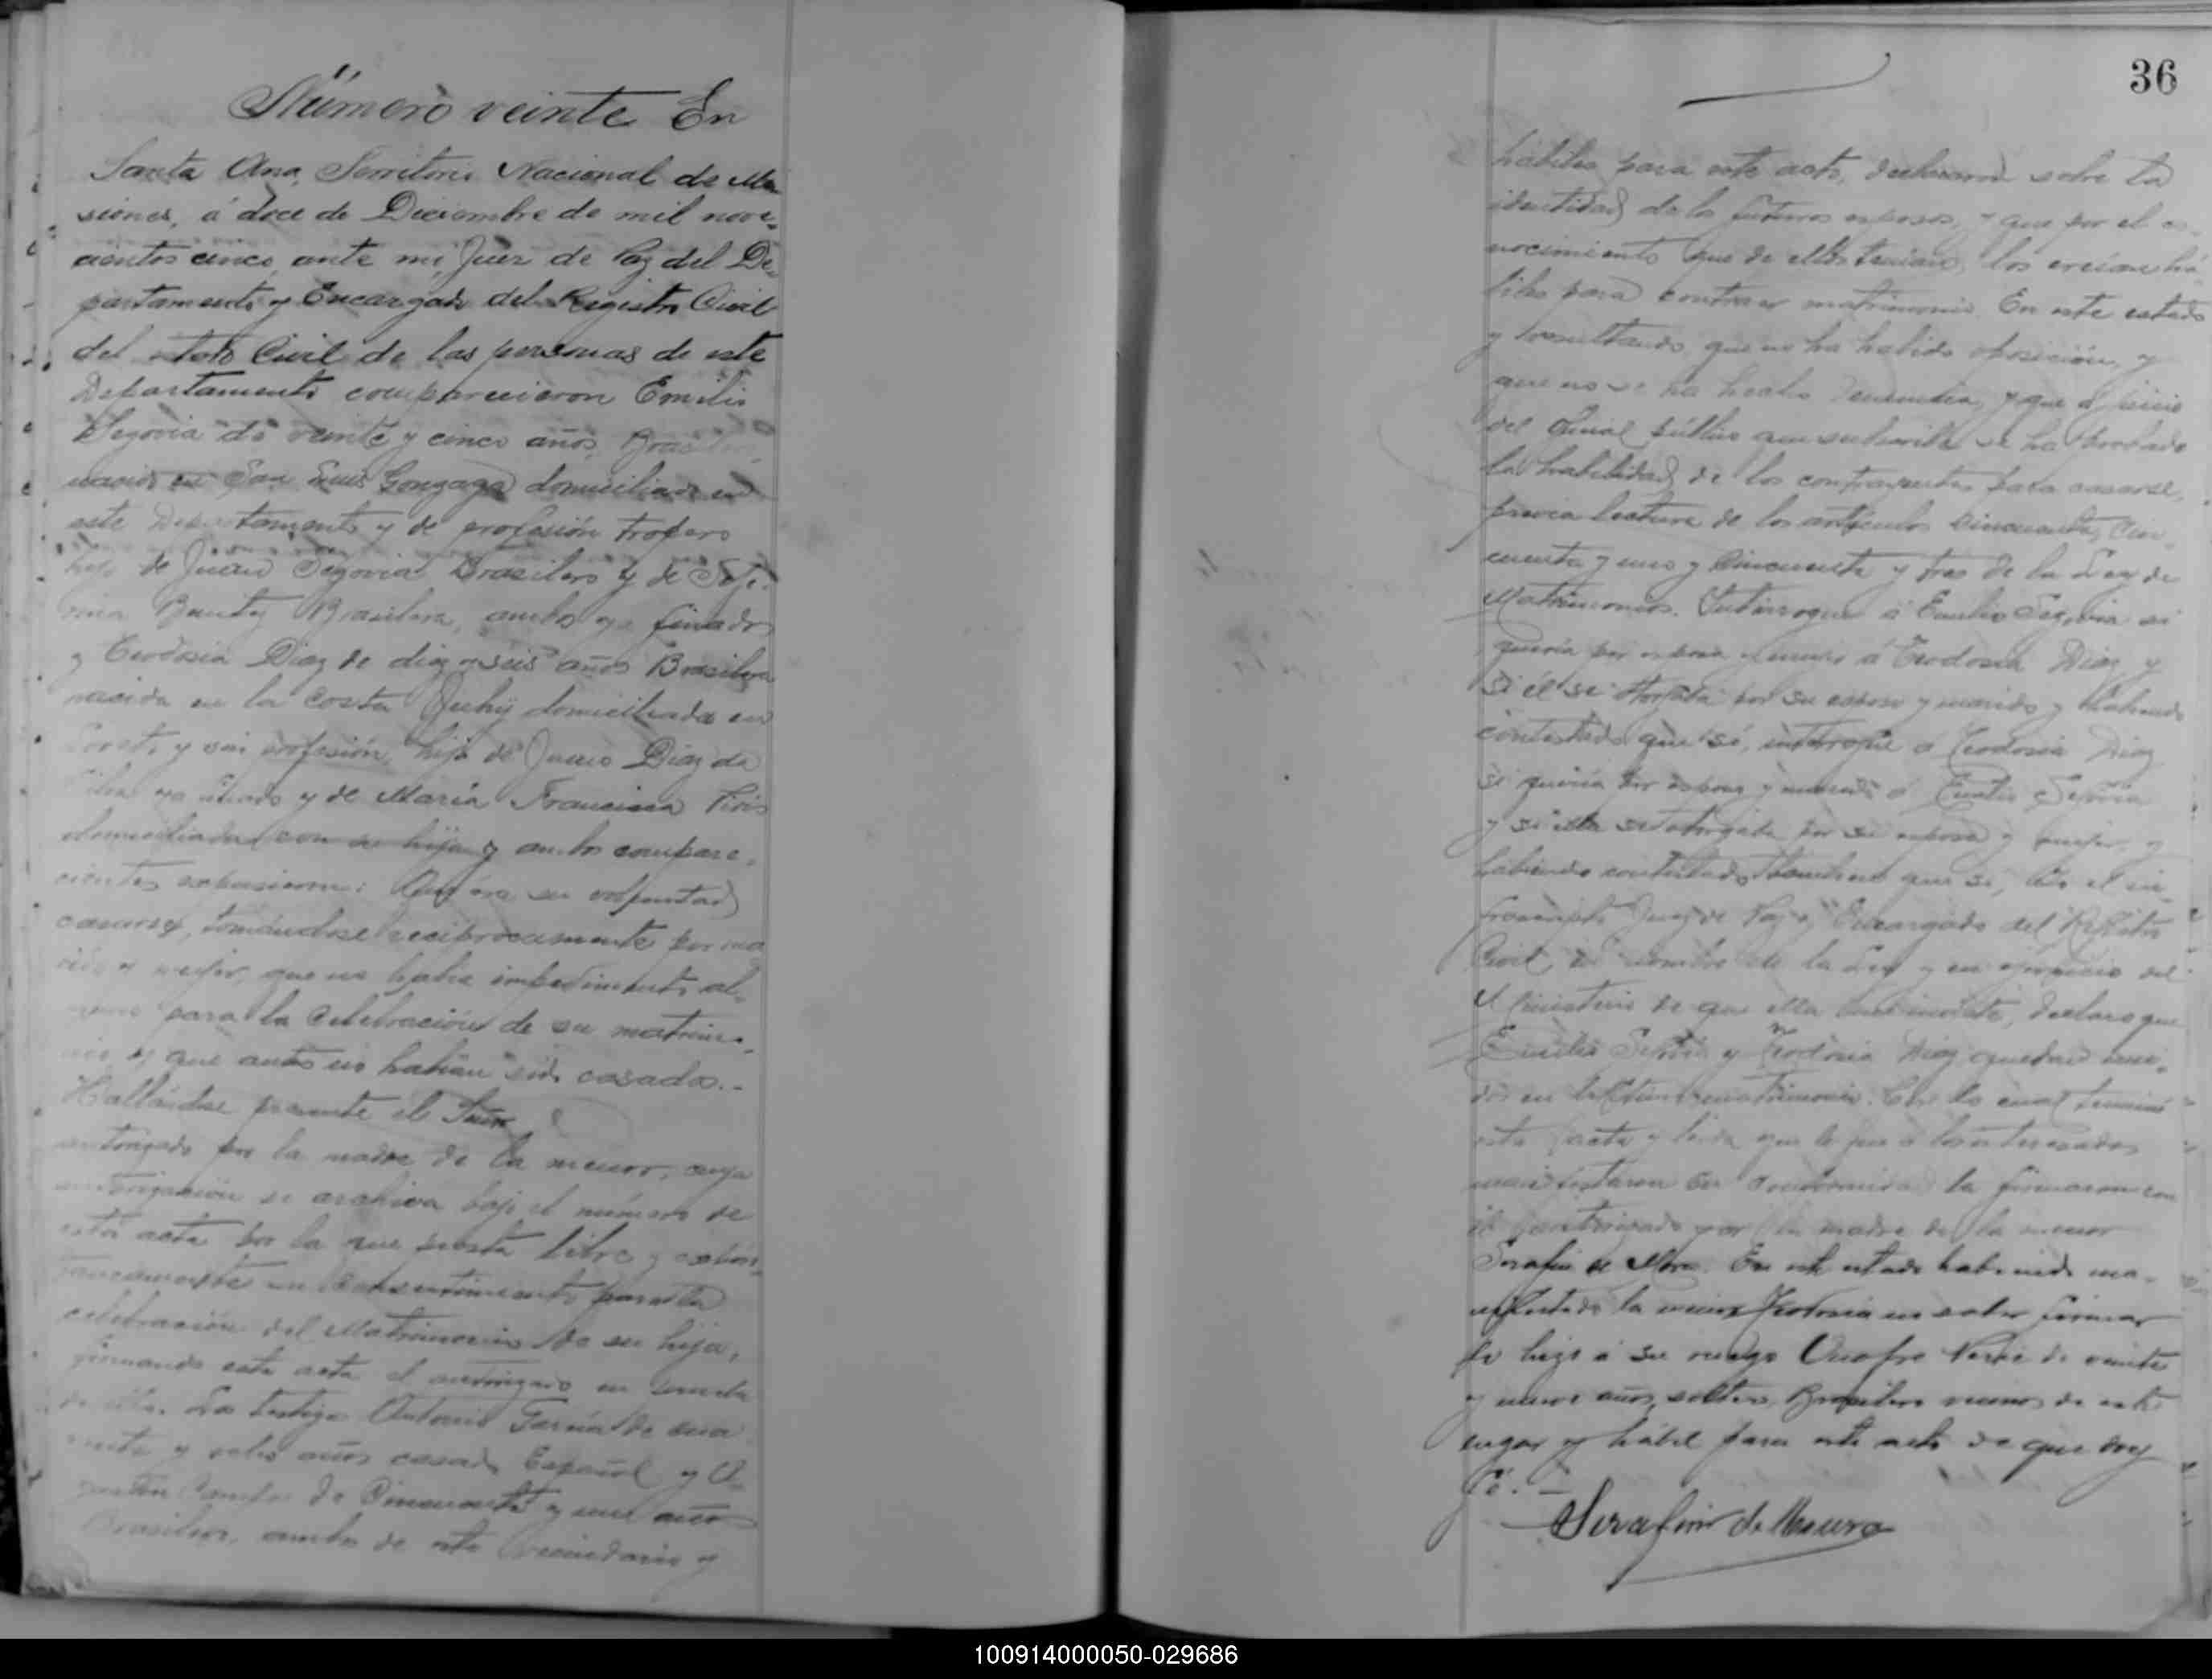 Número veinte En
Santa Ana, Territorio Nacional de Mi
siones, á doce de Diciembre de mil nove=
cientos cinco, ante mi, Juez de Paz del De=
partamento y Encargado del Registro Civil
del Civil de las personas de este
Departamento comparecieron Emilio
Segovia de veinte y cinco años, Brasilero,
nacido en San Luis Gonzaga domiciliado en
este Departamento y de profesión tropero
hijo de Juan Segovia Brasilero y de
Brasilera, ambos ya finados
y Teodosia Diaz de diez y seis años Brasilera
nacida en la costa domiciliada en
y sin profesión, hija de Diaz da
Silva ya finado y de María Francisca
domiciliada con su hija y ambos compare=
cientes expusieron: Que era su voluntad
casarse, tomándose recíprocamente por ma
rido y mujer, que no había impedimento al=
guno para la Celebración de su matrimo=
nio y que antes no habían sido casados.-
Hallándose presente el Señor
autorizado por la madre de la menor, cuya
autorización se archiva bajo el número de
esta acta por la que presta libre y
su consentimiento para la
celebración del Matrimonio de su hija,
firmando esta acta el autorizado en
de ello. Los testigos Antonio de
y ocho años casado Español y
de Cincuenta y un años
Brasilero, ambos de este vecindario y
36
hábiles para este acto, declararon sobre la
identidad de los futuros esposos, y que por el co=
nocimiento que de ellos tenian, los creían há
biles para contraer matrimonio. En este estado
y resultando que no ha habido oposición, y
que no se ha hecho denuncia, y que á juicio
del Oficial público que suscribe se ha probado
la habilidad de los contrayentes para casarse,
previa lectura de los artículos Cincuenta, Cin=
cuenta y uno y Cincuenta y tres de la Ley de
Matrimonios. Interrogué á Emilio Segovia si
quería por esposa y mujer á Teodosia Diaz y
si él se otorgaba por su esposo y marido y habiendo
contestado que sí, interrogué á Teodosia Diaz
si quería por esposo y marido á Emilio Segovia
y si ella se otorgaba por su esposa y mujer, y
habiendo contestado tambien que si, Yo el in=
frascripto Juez de Paz y Encargado del Registro
Civil, en nombre de la Ley y en ejercicio del
Ministerio de que ella me inviste, declaro que
Emilio Segovia y Teodosia Diaz quedan uni=
dos en matrimonio. Con lo cual terminó
esta acta y leida que le fue á los interesados
manifestaron su conformidad la firmaron con
el autorizado por la madre de la menor
Serafin de Moura. En este estado habiendo ma=
nifestado la menor Teodosia no saber firmar
lo hizo á su ruego Onofre de veinte
y nueve años, soltero, Brasilero vecino de este
lugar y hábil para este acto de que doy
fé. —
Serafim de Moura
100914000050-029686